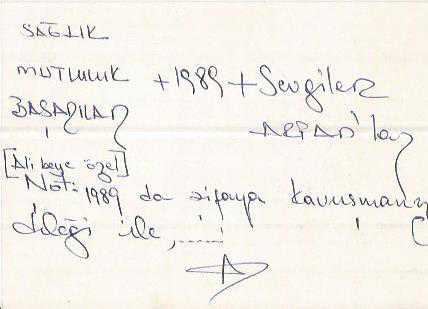 SAĞLIK
MUTLULUK + 1989 + Sevgiler
BAŞARILAR
ALPAD'lar
[Ali beye özel]
Not: 1989 da şifaya kavuşmanız
dileği ile, ......
A